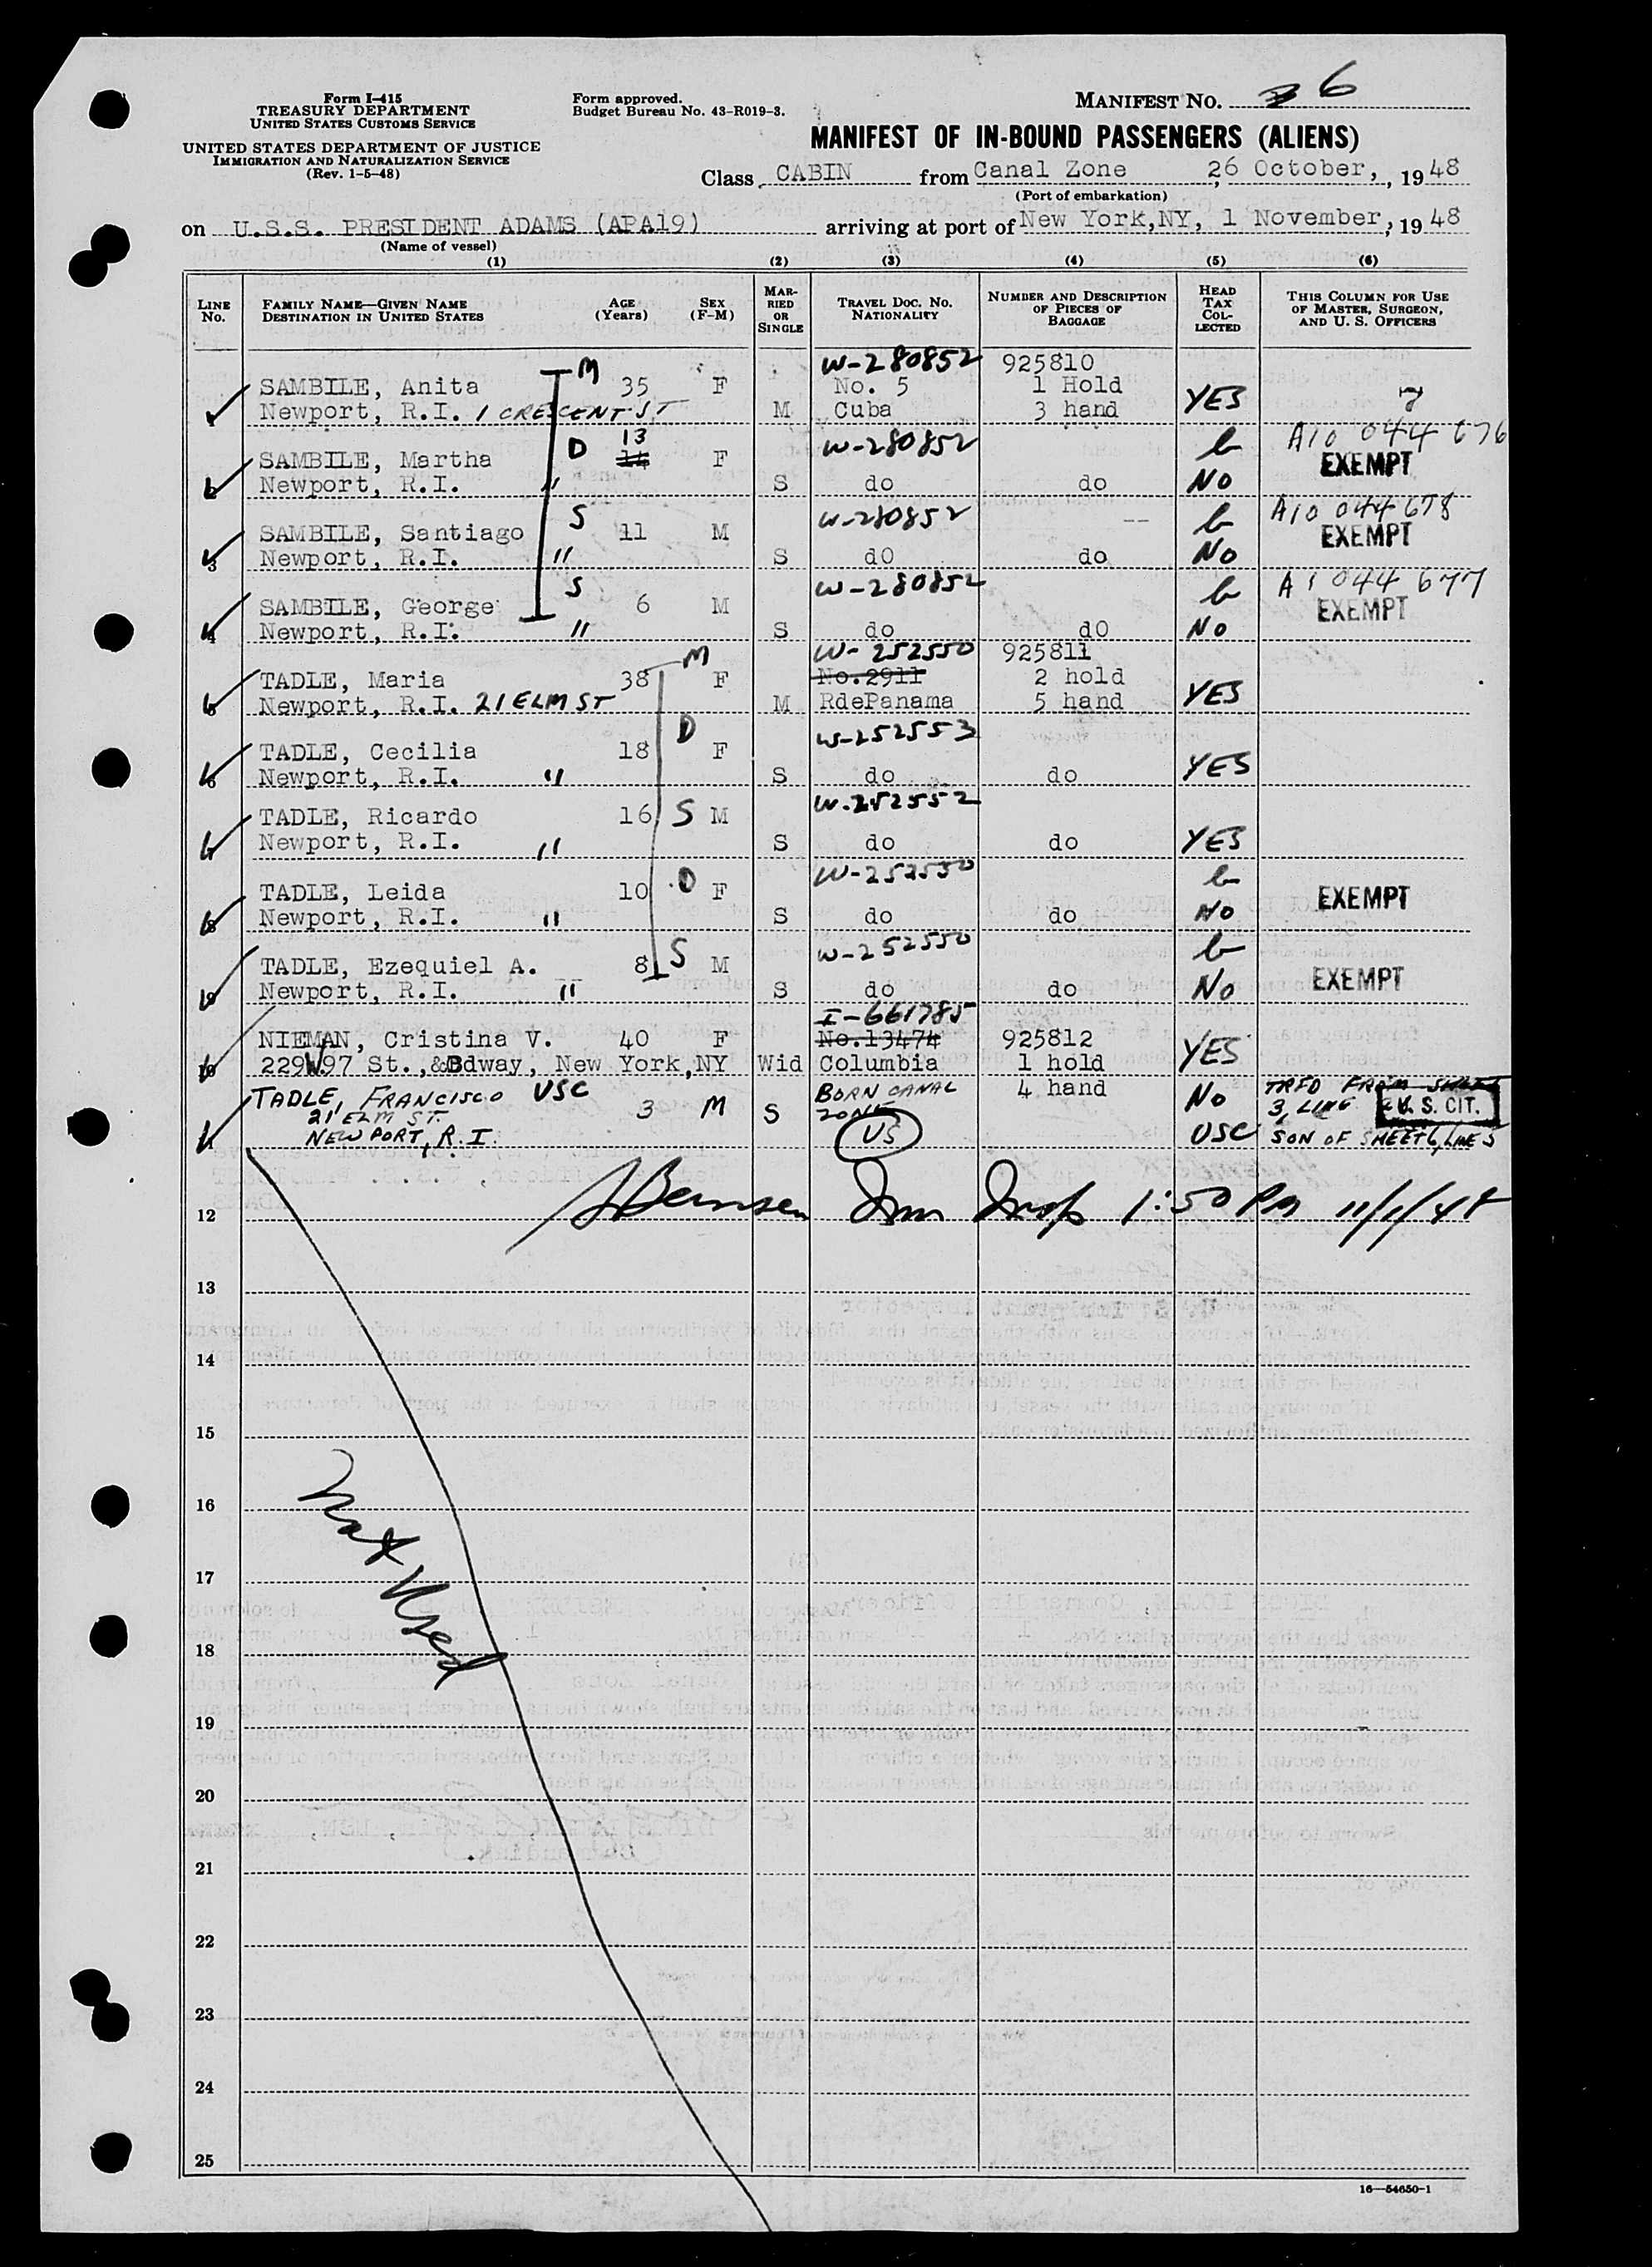 Form I-415
TREASURY DEPARTMENT
UNITED STATES CUSTOMS SERVICE
UNITED STATES DEPARTMENT OF JUSTICE
IMMIGRATION AND NATURALIZATION SERVICE
(Rev. 1-5-48)
Form approved.
Budget Bureau No. 43-R019-3.
MANIFEST NO. 6
MANIFEST OF IN-BOUND PASSENGERS (ALIENS)
Class CABIN from Canal Zone, 26 October, 1948
(Port of embarkation)
on U.S.S. PRESIDENT ADAMS (APA19) arriving at port of New York,NY, 1 November, 1948
(Name of vessel)
(1) (2) (3) (4) (5) (6)
LINE NO.
FAMILY NAME—GIVEN NAME DESTINATION IN UNITED STATES
AGE (Years)
SEX (F-M)
MARRIED OR SINGLE
TRAVEL DOC. NO. NATIONALITY
NUMBER AND DESCRIPTION OF PIECES OF BAGGAGE
HEAD TAX COLLECTED
THIS COLUMN FOR USE OF MASTER, SURGEON, AND U. S. OFFICERS
M W-280852 925810
SAMBILE, Anita 35 F No. 5 1 Hold
Newport, R.I. 1 CRESCENT ST M Cuba 3 hand YES
D 13 W-280852 A10 044 676
SAMBILE, Martha 14 F EXEMPT
2 Newport, R.I. " S do do NO
S W-280852 A10 044 678
SAMBILE, Santiago 11 M -- EXEMPT
3 Newport, R.I. " S dO do NO
S W-280852 A1 044 677
SAMBILE, George 6 M EXEMPT
4 Newport, R.I. " S do dO NO
M W-252550 925811
TADLE, Maria 38 F No.2911 2 hold
Newport, R.I. 21 ELM ST M RdePanama 5 hand YES
D W-252553
TADLE, Cecilia 18 F
Newport, R.I. " S do do YES
W-252552
TADLE, Ricardo 16 S M
Newport, R.I. " S do do YES
W-252550
TADLE, Leida 10 D F EXEMPT
Newport, R.I. " S do do NO
S W-252550
TADLE, Ezequiel A. 8 M EXEMPT
Newport, R.I. " S do do NO
I-661785
NIEMAN, Cristina V. 40 F No.13474 925812
229W.97 St.,&Bdway, New York,NY Wid Columbia 1 hold YES
4 hand
TADLE, FRANCISCO USC 3 M S BORN CANAL ZONE NO TRFD FROM SHEET
21 ELM ST. 3, LINE U.S. CIT.
NEWPORT, R.I. US USC SON OF SHEET 6, LINE 5
12 Imm Insp 1:50 PM 11/1/48
13
14
15
16
17
18
Not Used
19
20
21
22
23
24
25
16—54650-1